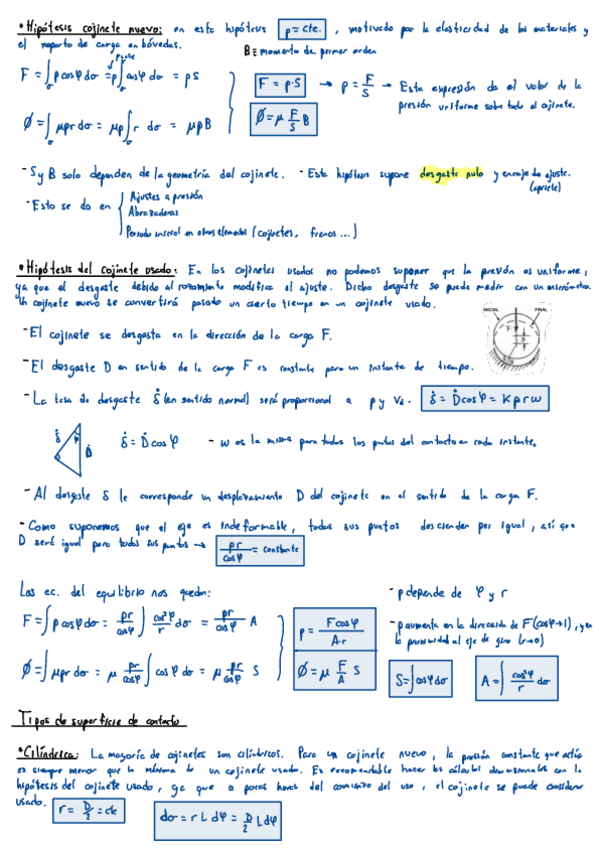 • Hipótesis cojinete nuevo: en esta hipótesis p = cte. , motivado por la elasticidad de los materiales y
el reparto de carga en bóvedas.
B ≡ momento de primer orden
F = ∫σ p cosφ dσ = p ∫σ cosφ dσ = p S
p = cte
F = p·S → p = F/S → Esta expresión da el valor de la
presión uniforme sobre todo el cojinete.
∅ = ∫σ μ p r dσ = μ p ∫σ r dσ = μ p B
∅ = μ F/S B
- S y B solo dependen de la geometría del cojinete. - Esta hipótesis supone desgaste nulo y encaje de ajuste.
(apriete)
- Esto se da en { Ajustes a presión
Abrazaderas
Periodo inicial en otros elementos (cojinetes, frenos ...)
• Hipótesis del cojinete usado: En los cojinetes usados no podemos suponer que la presión es uniforme,
ya que el desgaste debido al rozamiento modifica el ajuste. Dicho desgaste se puede medir con un micrómetro.
Un cojinete nuevo se convertirá pasado un cierto tiempo en un cojinete usado.
INICIAL FINAL
F
- El cojinete se desgasta en la dirección de la carga F.
- El desgaste D en sentido de la carga F es constante para un instante de tiempo.
- La tasa de desgaste δ̇ (en sentido normal) será proporcional a p y Vd. δ̇ = Ḋ cosφ = K p r ω
δ̇ φ Ḋ
δ̇ = Ḋ cosφ - ω es la misma para todos los puntos del contacto en cada instante.
- Al desgaste δ le corresponde un desplazamiento D del cojinete en el sentido de la carga F.
- Como suponemos que el eje es indeformable, todos sus puntos descienden por igual, así que
D será igual para todos sus puntos → pr/cosφ = constante
Las ec. del equilibrio nos quedan:
- p depende de φ y r
F = ∫ p cosφ dσ = pr/cosφ ∫ cos²φ/r dσ = pr/cosφ A
p = F cosφ / A·r
- p aumenta en la dirección de F (cosφ→1), y en
la proximidad al eje de giro (r→0)
∅ = ∫ μ p r dσ = μ pr/cosφ ∫ cosφ dσ = μ pr/cosφ S
∅ = μ F/A S
S = ∫ cosφ dσ
A = ∫ cos²φ/r dσ
Tipos de superficie de contacto
• Cilíndrica: La mayoría de cojinetes son cilíndricos. Para un cojinete nuevo, la presión constante que actúa
es siempre menor que la máxima de un cojinete usado. Es recomendable hacer los cálculos dimensionales con la
hipótesis del cojinete usado, ya que a pocas horas del comienzo del uso, el cojinete se puede considerar
usado. r = D/2 = cte
dσ = r L dφ = D/2 L dφ